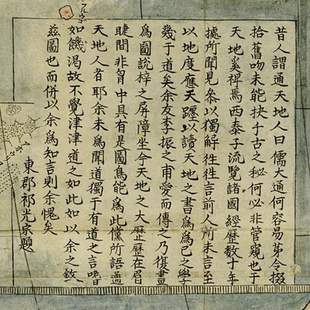 昔人謂通天地人曰儒夫通何容易第令掇
拾舊吻未能抉千古之秘何必非管窺也于
天地奚裨焉西泰子流覽諸國經歷數十年
據所聞見參以獨解徃徃言前人所未言至
以地度應天躔以讀天地之書為為己之學
幾于道矣余友李振之甫愛而傳之乃復畫
為圖說梓之屏障坐令天地之大歷歷在眉
睫間非胷中具有是圖烏能為此儻所語通
天地人者耶余未為聞道獨于有道之言嗜
如饑渴故不覺津津道之如此如以余之攷
茲圖也而併以余為知言則余愧矣
東郡祁光宗題